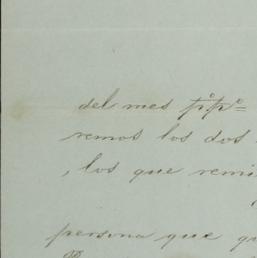 del mes p.º p.º=
remos los dos
, los que remi
persona que qu